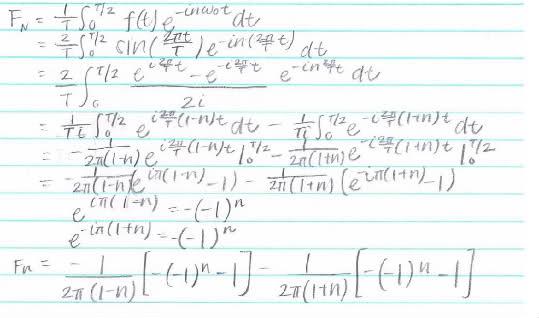 F_N = 1/T ∫₀^{T/2} f(t) e^{-inω₀t} dt
= 2/T ∫₀^{T/2} sin(2πt/T) e^{-in(2π/T t)} dt
= 2/T ∫₀^{T/2} (e^{i2π/T t} - e^{-i2π/T t})/2i e^{-in2π/T t} dt
= 1/Ti ∫₀^{T/2} e^{i2π/T(1-n)t} dt - 1/Ti ∫₀^{T/2} e^{-i2π/T(1+n)t} dt
= -1/2π(1-n) e^{i2π/T(1-n)t} |₀^{T/2} - 1/2π(1+n) e^{-i2π/T(1+n)t} |₀^{T/2}
= -1/2π(1-n) (e^{iπ(1-n)} - 1) - 1/2π(1+n) (e^{-iπ(1+n)} - 1)
e^{iπ(1-n)} = -(-1)^n
e^{-iπ(1+n)} = -(-1)^n
F_n = -1/2π(1-n) [-(-1)^n - 1] - 1/2π(1+n) [-(-1)^n - 1]